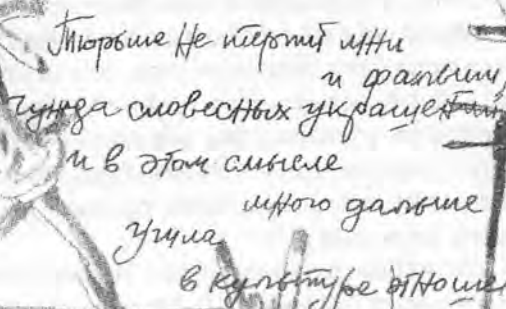 Тюрьма не терпит лжи
и фальши,
чужда словесных украшений
и в этом смысле
много дальше
Ушла
в культуре отноше